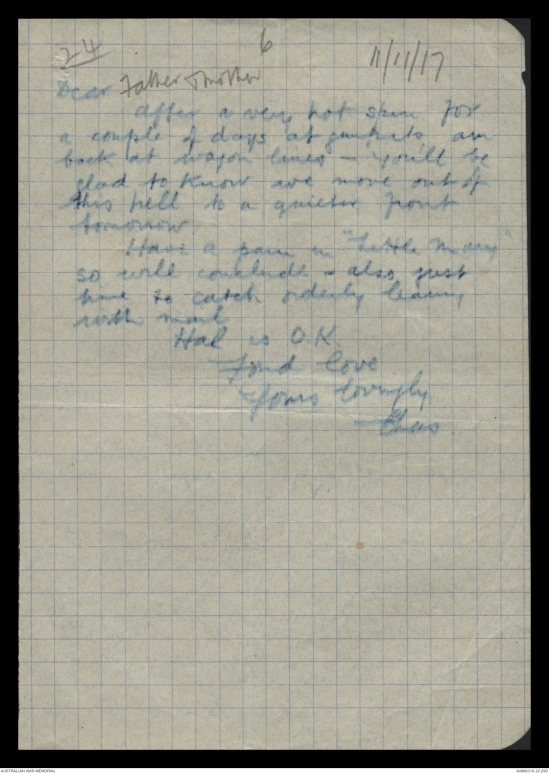 24
6
11/11/17
Dear Father & mother
After a very hot spin for
a couple of days at gunpits am
back at wagon lines – you'll be
glad to know we move out of
this hell to a quieter front
tomorrow.
Have a pain in "Little Mary"
so will conclude – also just
time to catch orderly leaving
with mail.
Hal is O.K.
Fond love
Yours lovingly
Chas.
AUSTRALIAN WAR MEMORIAL